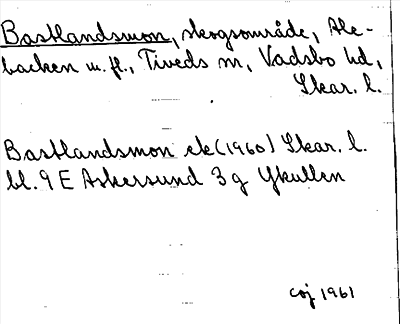 Bastlandsmon, skogsområde, Ale-
backen m. fl., Tiveds sn, Vadsbo hd,
Skar. l.
Bastlandsmon ek (1960) Skar. l.
bl. 9 E Askersund 3 g Ykullen
COJ 1961